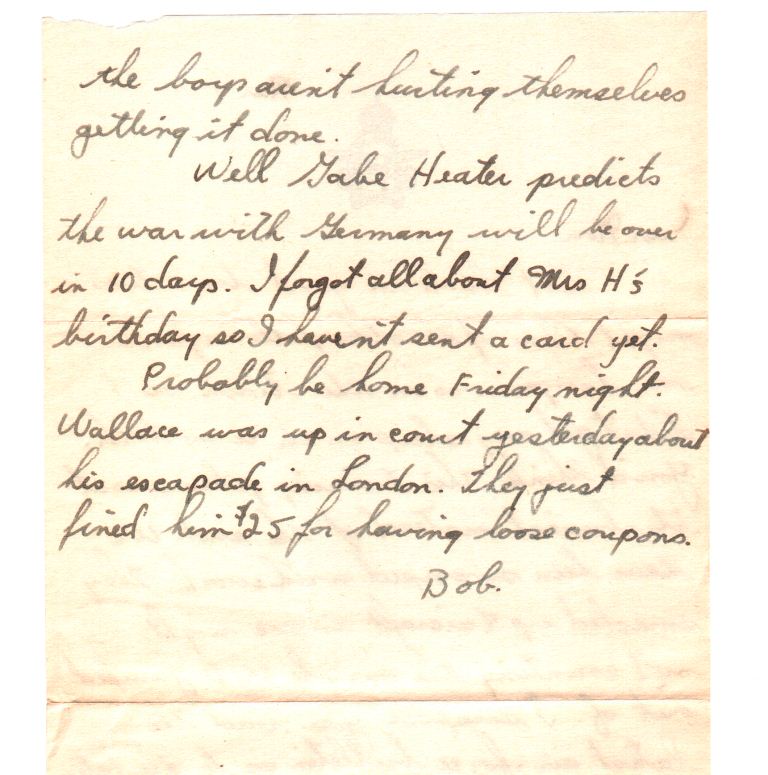 the boys aren't hurting themselves
getting it done.
Well Gabe Heater predicts
the war with Germany will be over
in 10 days. I forgot all about Mrs H's
birthday so I haven't sent a card yet.
Probably be home Friday night.
Wallace was up in court yesterday about
his escapade in London. They just
fined him $25 for having loose coupons.
Bob.